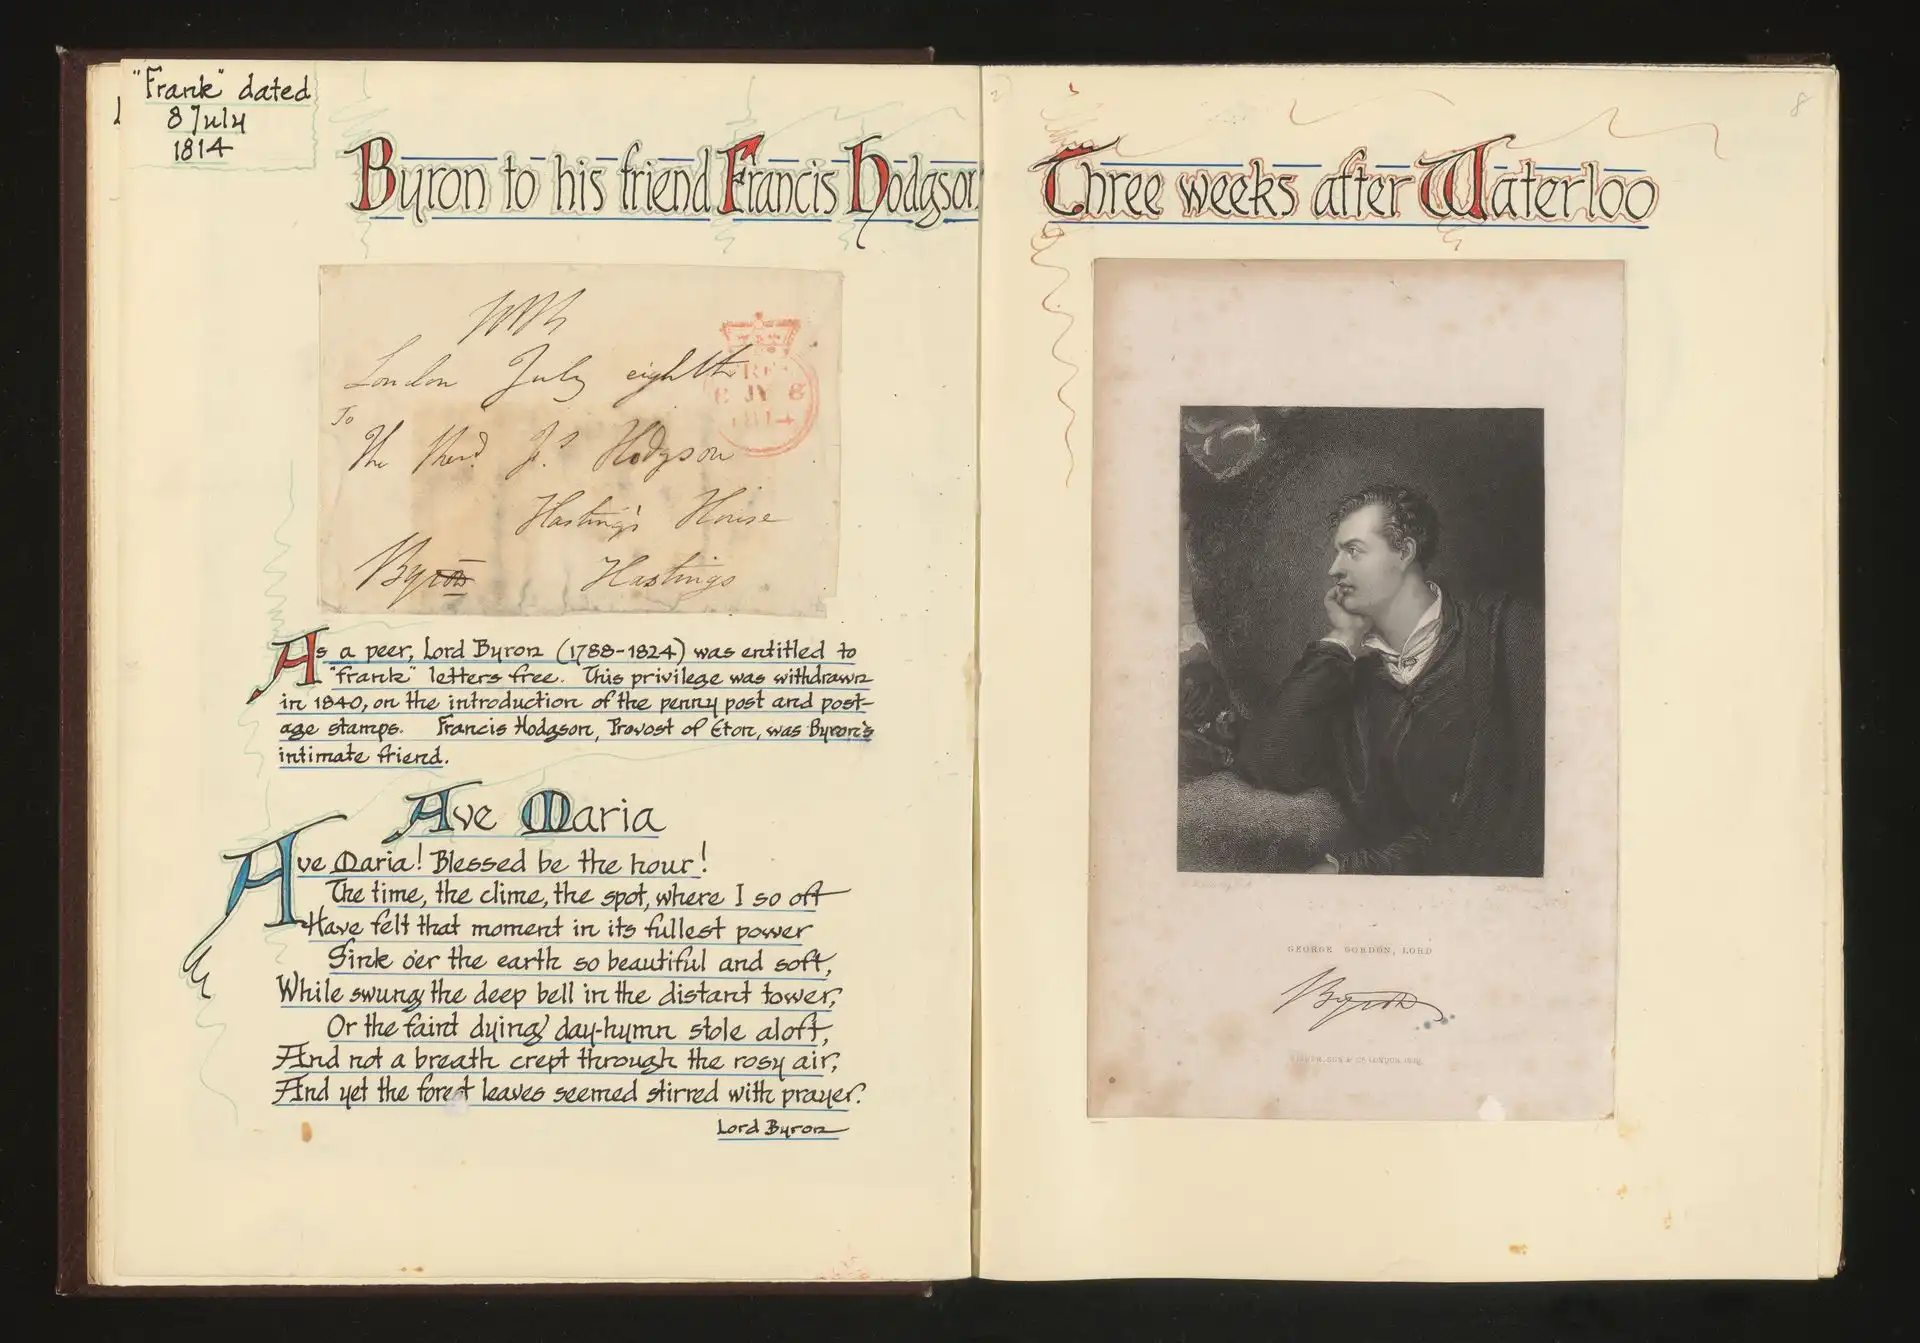 "Frank" dated
8 July
1814
Byron to his friend Francis Hodgson.
London July eighth
To
The Revd. Fs. Hodgson
Hastings House
Byron Hastings
FREE
8 JY 8
1814
As a peer, Lord Byron (1788-1824) was entitled to
"frank" letters free. This privilege was withdrawn
in 1840, on the introduction of the penny post and post-
age stamps. Francis Hodgson, Provost of Eton, was Byron's
intimate friend.
Ave Maria
Ave Maria! Blessed be the hour!
The time, the clime, the spot, where I so oft
Have felt that moment in its fullest power
Sink o'er the earth so beautiful and soft,
While swung the deep bell in the distant tower,
Or the faint dying day-hymn stole aloft,
And not a breath crept through the rosy air,
And yet the forest leaves seemed stirred with prayer.
Lord Byron
8
Three weeks after Waterloo
GEORGE GORDON, LORD
Byron